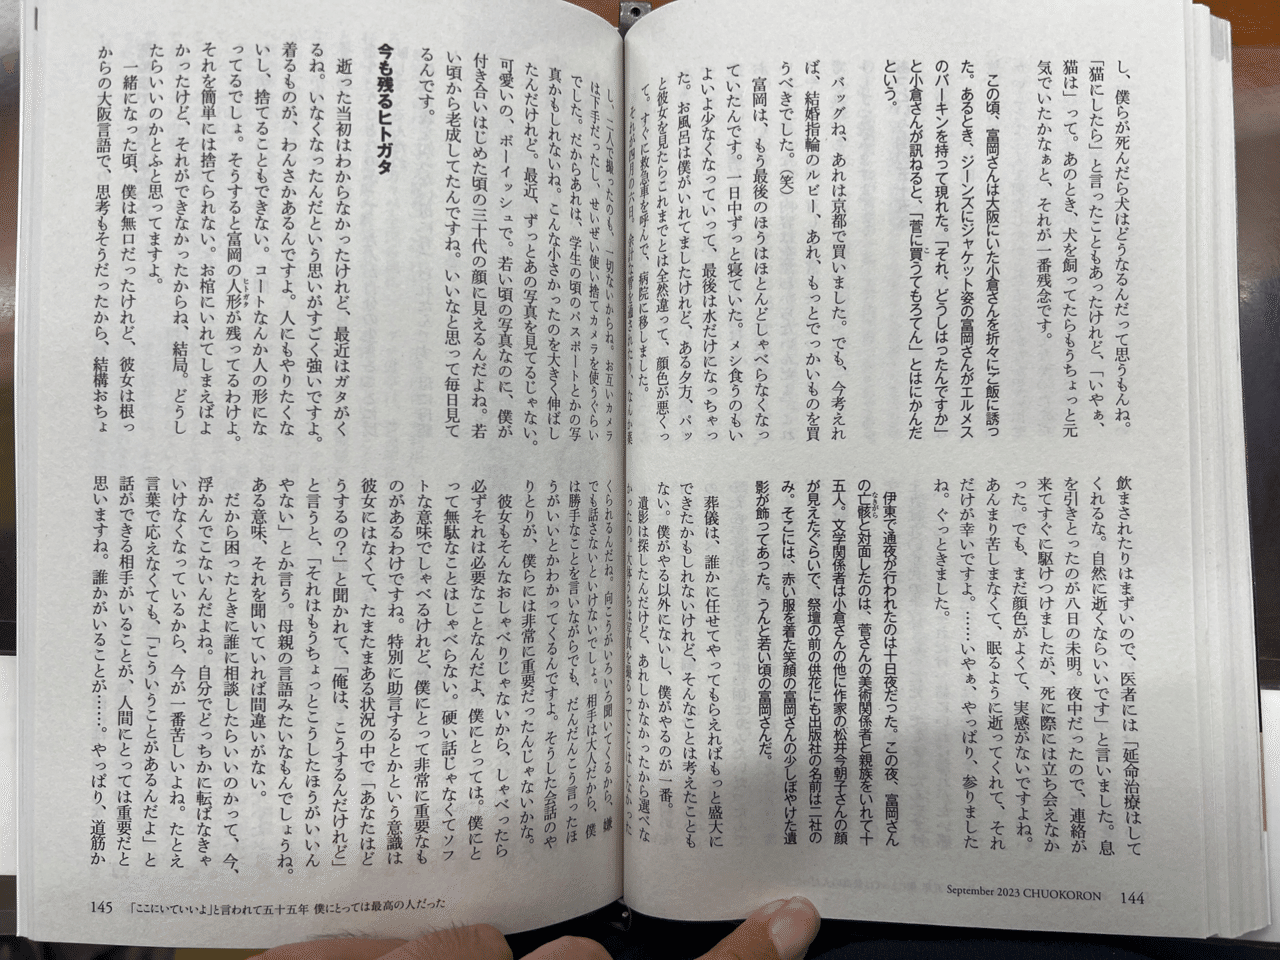 し、僕らが死んだら犬はどうなるんだって思うもんね。
「猫にしたら」と言ったこともあったけれど、「いやぁ、
猫は」って。あのとき、犬を飼ってたらもうちょっと元
気でいたかなぁと、それが一番残念です。
この頃、富岡さんは大阪にいた小倉さんを折々にご飯に誘っ
た。あるとき、ジーンズにジャケット姿の富岡さんがエルメス
のバーキンを持って現れた。「それ、どうしはったんですか」
と小倉さんが訊ねると、「菅に買うてもろてん」とはにかんだ
という。
バッグね、あれは京都で買いました。でも、今考えれ
ば、結婚指輪のルビー、あれ、もっとでっかいものを買
うべきでした。(笑)
富岡は、もう最後のほうはほとんどしゃべらなくなっ
ていたんです。一日中ずっと寝ていた。メシ食うのもい
よいよ少なくなっていって、最後は水だけになっちゃっ
た。お風呂は僕がいれてましたけれど、ある夕方、パッ
と彼女を見たらこれまでとは全然違って、顔色が悪くっ
て。すぐに救急車を呼んで、病院に移しました。
それが四月の六日。余計な管を通されたり、なんか薬
飲まされたりはまずいので、医者には「延命治療はして
くれるな。自然に逝くならいいです」と言いました。息
を引きとったのが八日の未明。夜中だったので、連絡が
来てすぐに駆けつけましたが、死に際には立ち会えなか
った。でも、まだ顔色がよくて、実感がないですよね。
あんまり苦しまなくて、眠るように逝ってくれて、それ
だけが幸いですよ。……いやぁ、やっぱり、参りました
ね。ぐっときました。
伊東で通夜が行われたのは十日夜だった。この夜、富岡さん
の亡骸と対面したのは、菅さんの美術関係者と親族をいれて十
五人。文学関係者は小倉さんの他に作家の松井今朝子さんの顔
が見えたぐらいで、祭壇の前の供花にも出版社の名前は二社の
み。そこには、赤い服を着た笑顔の富岡さんの少しぼやけた遺
影が飾ってあった。うんと若い頃の富岡さんだ。
葬儀は、誰かに任せてやってもらえればもっと盛大に
できたかもしれないけれど、そんなことは考えたことも
ない。僕がやる以外にないし、僕がやるのが一番。
遺影は探したんだけど、あれしかなかったから選べな
かったの。大体うちは写真を撮るってことはしなかった
September 2023 CHUOKORON 144
し、二人で撮ったのも、一切ないからね。お互いカメラ
は下手だったし、せいぜい使い捨てカメラを使うぐらい
でした。だからあれは、学生の頃のパスポートとかの写
真かもしれないね。こんな小さかったのを大きく伸ばし
たんだけれど。最近、ずっとあの写真を見てるじゃない。
可愛いの、ボーイッシュで。若い頃の写真なのに、僕が
付き合いはじめた頃の三十代の顔に見えるんだよね。若
い頃から老成してたんですね。いいなと思って毎日見て
るんです。
今も残るヒトガタ
逝った当初はわからなかったけれど、最近はガタがく
るね。いなくなったんだという思いがすごく強いですよ。
着るものが、わんさかあるんですよ。人にもやりたくな
いし、捨てることもできない。コートなんか人の形にな
ってるでしょ。そうすると富岡の人形が残ってるわけよ。
それを簡単には捨てられない。お棺にいれてしまえばよ
かったけど、それができなかったからね、結局。どうし
たらいいのかとふと思ってますよ。
一緒になった頃、僕は無口だったけれど、彼女は根っ
からの大阪言語で、思考もそうだったから、結構おちょ
くられるんだね。向こうがいろいろ聞いてくるから、嫌
でも話さないといけないでしょ。相手は大人だから、僕
は勝手なことを言いながらでも、だんだんこう言ったほ
うがいいとかわかってくるんですよ。そうした会話のや
りとりが、僕らには非常に重要だったんじゃないかな。
彼女もそんなおしゃべりじゃないから、しゃべったら
必ずそれは必要なことなんだよ、僕にとっては。僕にと
って無駄なことはしゃべらない。硬い話じゃなくてソフ
トな意味でしゃべるけれど、僕にとって非常に重要なも
のがあるわけですね。特別に助言するとかという意識は
彼女にはなくて、たまたまある状況の中で「あなたはど
うするの?」と聞かれて、「俺は、こうするんだけれど」
と言うと、「それはもうちょっとこうしたほうがいいん
やない」とか言う。母親の言語みたいなもんでしょうね。
ある意味、それを聞いていれば間違いがない。
だから困ったときに誰に相談したらいいのかって、今、
浮かんでこないんだよね。自分でどっちかに転ばなきゃ
いけなくなっているから、今が一番苦しいよね。たとえ
言葉で応えなくても、「こういうことがあるんだよ」と
話ができる相手がいることが、人間にとっては重要だと
思いますね。誰かがいることが……。やっぱり、道筋か
145 「ここにいていいよ」と言われて五十五年 僕にとっては最高の人だった